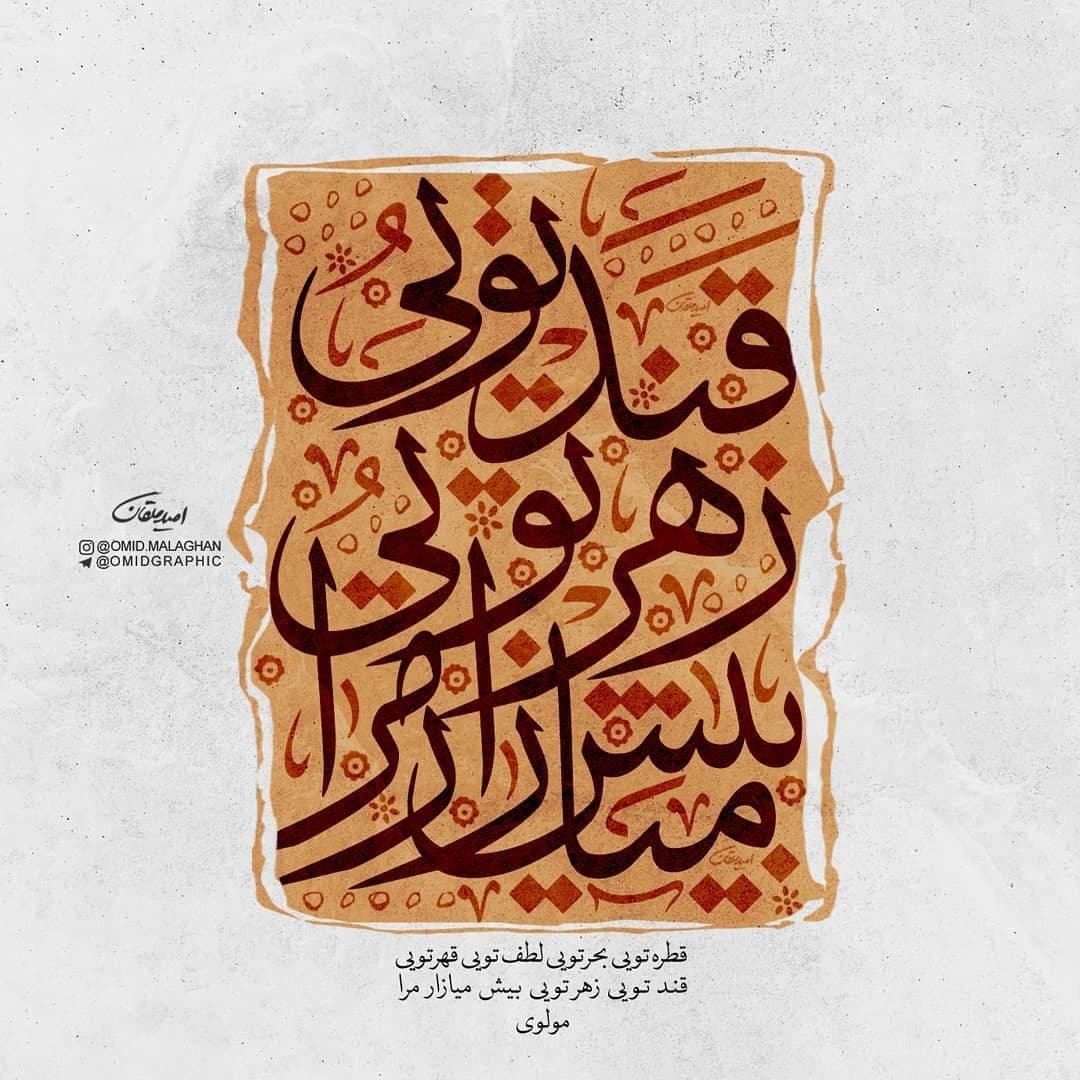 قند تویی
زهر تویی
بیش میازار مرا
امید ملقان
@OMID.MALAGHAN
@OMIDGRAPHIC
قطره تویی بحر تویی لطف تویی قهر تویی
قند تویی زهر تویی بیش میازار مرا
مولوی